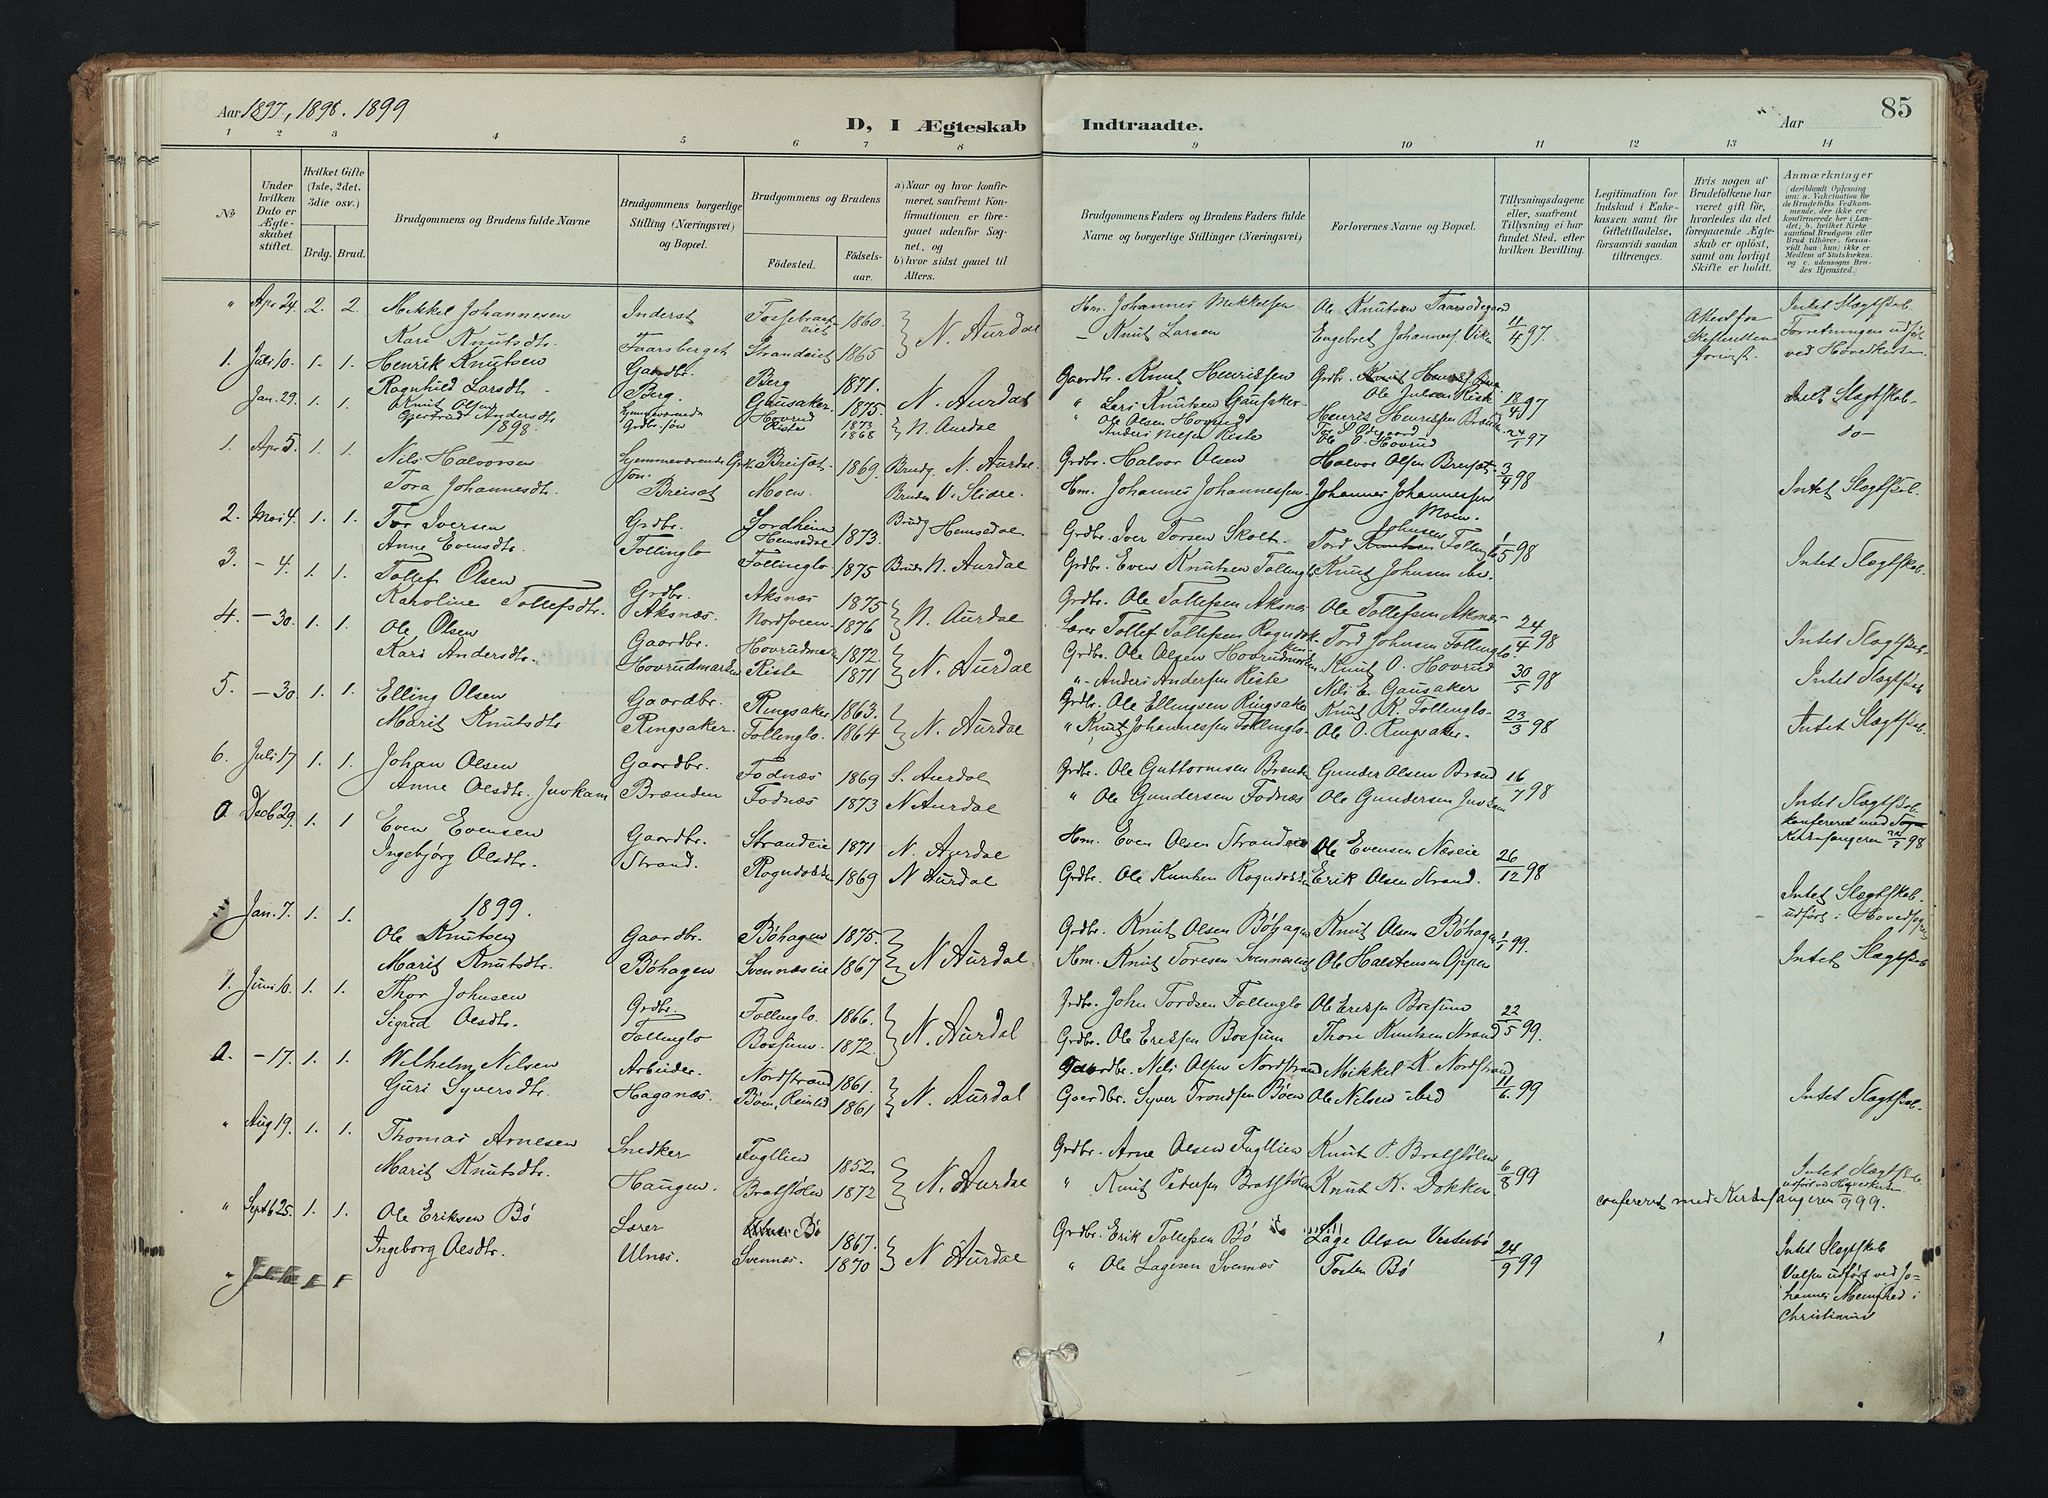 Aar 1897, 1898. 1899
D, I Ægteskab Indtraadte.
Aar 85
1 2 3 4 5 6 7 8 9 10 11 12 13 14
No
Under hvilken Dato er Ægteskabet stiftet.
Hvilket Gifte (1ste, 2det, 3die osv.)
Brdg. Brud.
Brudgommens og Brudens fulde Navne
Brudgommens borgerlige Stilling (Næringsvei) og Bopæl.
Brudgommens og Brudens
Födested. Födsels-aar.
a) Naar og hvor konfirmeret, saafremt Konfirmationen er foregaaet udenfor Sognet, og b) hvor sidst gaaet til Alters.
Brudgommens Faders og Brudens Faders fulde Navne og borgerlige Stillinger (Næringsvei)
Forlovernes Navne og Bopæl.
Tillysningsdagene eller, saafremt Tillysning ei har fundet Sted, efter hvilken Bevilling.
Legitimation for Indskud i Enkekassen samt for Giftetilladelse, forsaavidt saadan tiltrænges.
Hvis nogen af Brudefolkene har været gift för, hvorledes da det foregaaende Ægteskab er oplöst, samt om lovligt Skifte er holdt.
Anmærkninger (deriblandt Oplysning om: a. Vakcination for de Brudefolks Vedkommende, der ikke ere konfirmerede her i Landet; b. hvilket Kirkesamfund Brudgom eller Brud tilhörer, forsaavidt han (hun) ikke er Medlem af Statskirken, og c. udensogns Brudes Hjemsted.)
" Apr 24. 2. 2. Mikkel Johannesen Inderst 1860. N. Aurdal Hm. Johannes Mikkelsen Ole Knutsen 11/4 97. Attest fra Skifteretten Intet Slægtskab.
Kari Knutsdtr. Faarsberget Strandeiet 1865 - Knut Larsen Engebret Johannes. Viken Forretningen udført ved Hovedkirken
1. Juli 10. 1. 1. Henrik Knutsen Gaardbr. Berg 1871. N. Aurdal Gaardbr. Knut Henriksen Grdbr. 18/4 97 Intet Slægtskab.
Ragnhild Larsdtr. Berg. Gausaker 1875. " Lars Knutsen Gausaker. Henrik Henriksen
Jan. 29. 1. 1. Knut Olsen Hjemmeværende Hovrud 1873 N. Aurdal " Ole Olsen Hovrud 24/1 97 do -
Gjertrud Andersdtr. Grdbr. søn Riste 1868 Anders Riste Ole O. Hovrud
1898.
1. Apr 5. 1. 1. Nils Halvorsen Hjemmeværende Grdbr. Breisæt 1869. Brudg. N. Aurdal. Grdbr. Halvor Olsen Halvor Olsen Breisæt. 3/4 98 Intet Slægtskab.
Tora Johannesdtr. søn. Breisæt Moen. Bruden V. Slidre. Hm. Johannes Johannessen. Johannes Johannessen Moen.
2. Mai 4. 1. 1. Tor Iversen Grdbr. Jordheim Hemsedal 1873. Brudg Hemsedal Grdbr. Iver Torsen Skolt. Tord Johnsen Follinglo 1/5 98 Intet Slægtskab.
Anne Evensdtr. Follinglo Follinglo 1875 Brud N. Aurdal Grdbr. Even Knutsen Follinglo Knut Johnsen ibid.
3. - 4. 1. 1. Tollef Olsen Grdbr. Aksnæs 1875 N. Aurdal Grdbr. Ole Tollefsen Aksnæs Ole Tollefsen Aksnæs 24/4 98 Intet Slægtskab.
Karoline Tollefsdtr. Aksnæs. Nordsveen 1876 Lærer Tollef Tollefsen Rogndokken Tord Johnsen Follinglo.
4. - 30. 1. 1. Ole Olsen Gaardbr. Hovrudmark. 1872. N. Aurdal Grdbr. Ole Olsen Hovrudmarken Knut O. Hovrud 30/5 98 Intet Slægtskab
Kari Andersdtr. Hovrudmarken Riste 1871 " - Anders Andersen Riste Nils E. Gausaker
5. - 30. 1. 1. Elling Olsen Gaardbr. Ringsaker 1863. N. Aurdal Grdbr. Ole Ellingsen Ringsaker Knut K. Follinglo. 23/3 98 Intet Slægtskab.
Marit Knutsdtr Ringsaker. Follinglo. 1864 " Knut Johannessen Follinglo. Ole O. Ringsaker.
6. Juli 17 1. 1. Johan Olsen Gaardbr. Fodnæs 1869 S. Aurdal Grdbr. Ole Guttormsen Brænden Gunder Olsen Brænd 16/7 98 Intet Slægtskab.
Anne Olsdtr. Juvkam Brænden Fodnæs 1873 N Aurdal " Ole Gundersen Fodnæs Ole Gundersen Juvkam konfereret med Kirkesangeren 98
0. Decb 29. 1. 1 Even Evensen Gaardbr. Strandeie 1871 N. Aurdal Hm. Even Olsen Strandeie Ole Evensen Næseie 26/12 98 Intet Slægtskab.
Ingebjørg Olsdtr. Strand. Rogndokken 1869 N Aurdal Grdbr. Ole Knutsen Rogndokken Erik Olsen Strand. udført i Hovedsognet
1899.
Jan. 7. 1. 1. Ole Knutsen Gaardbr. Bøhagen 1875. N Aurdal Grdbr. Knut Olsen Bøhagen Knut Olsen Bøhagen 1/1 99. Intet Slægtskab
Marit Knutsdtr. Bøhagen Svennæseie 1867 Hm. Knut Toresen Svennæseie Ole Halstensen Oppen
1. Juni 10. 1. 1. Thor Johnsen Grdbr. Follinglo. 1866. N. Aurdal Grdbr. John Tordsen Follinglo Ole Eriksen Bossum 22/5 99.
Sigrid Olsdtr. Follinglo Bossum. 1872. Grdbr. Ole Eriksen Bossum Thore Knutsen Strand
0. - 17. 1. 1. Wilhelm Nilsen Arbeider. Nordstrand 1861. N. Aurdal Gaardbr. Nils Olsen Nordstrand Mikkel K. Nordstrand 11/6. 99 Intet Slægtskab.
Guri Syversdtr. Haganæs. Bøen, Reinlid 1861 Gaardbr. Syver Trondsen Bøen Ole Nilsen ibid
" Aug 19. 1. 1. Thomas Arnesen Snedker Fugllien 1852. N. Aurdal Grdbr. Arne Olsen Fugllien Knut P. Bratstølen 6/8 99 Intet Slægtskab.
Marit Knutsdtr. Haugen. Bratstølen 1872 " Knut Pedersen Bratstølen Knut K. Dokken confereret med Kirkesangeren 99.
" Septb 25. 1. 1. Ole Eriksen Bø Lærer Bø 1867. N Aurdal Grdbr. Erik Tollefsen Bø Lage Olsen Vestebø 24/9 99 Intet Slægtskab
Ingeborg Olsdtr. Ulnæs. Svennæs. 1870 " Ole Lagesen Svennæs Tosten Bø Vielsen udført ved Johannes i Christiania